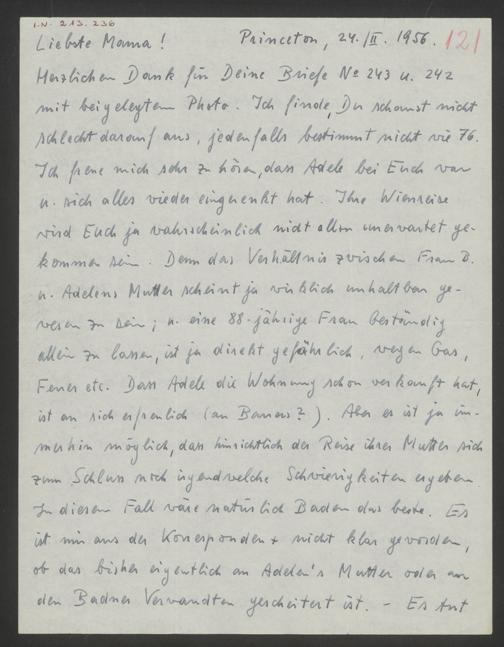 I.N. 213.236
Liebste Mama! Princeton, 24./II. 1956. 121
Herzlichen Dank für Deine Briefe No 243 u. 242
mit beigelegtem Photo. Ich finde, Du schaust nicht
schlecht darauf aus, jedenfalls bestimmt nicht wie 76.
Ich freue mich sehr zu hören, dass Adele bei Euch war
u. sich alles wieder eingerenkt hat. Ihre Wienreise
wird Euch ja wahrscheinlich nicht allzu unerwartet ge-
kommen sein. Denn das Verhältnis zwischen Frau B.
u. Adelens Mutter scheint ja wirklich unhaltbar ge-
wesen zu sein; u. eine 88-jährige Frau beständig
allein zu lassen, ist ja direkt gefährlich, wegen Gas,
Feuer etc. Dass Adele die Wohnung schon verkauft hat,
ist an sich erfreulich (an Bauers?). Aber es ist ja im-
merhin möglich, dass hinsichtlich der Reise ihrer Mutter sich
zum Schluss noch irgendwelche Schwierigkeiten ergeben.
In diesem Fall wäre natürlich Baden das beste. Es
ist mir aus der Korrespondenz nicht klar geworden,
ob das bisher eigentlich an Adelen's Mutter oder an
den Badner Verwandten gescheitert ist. – Es tut